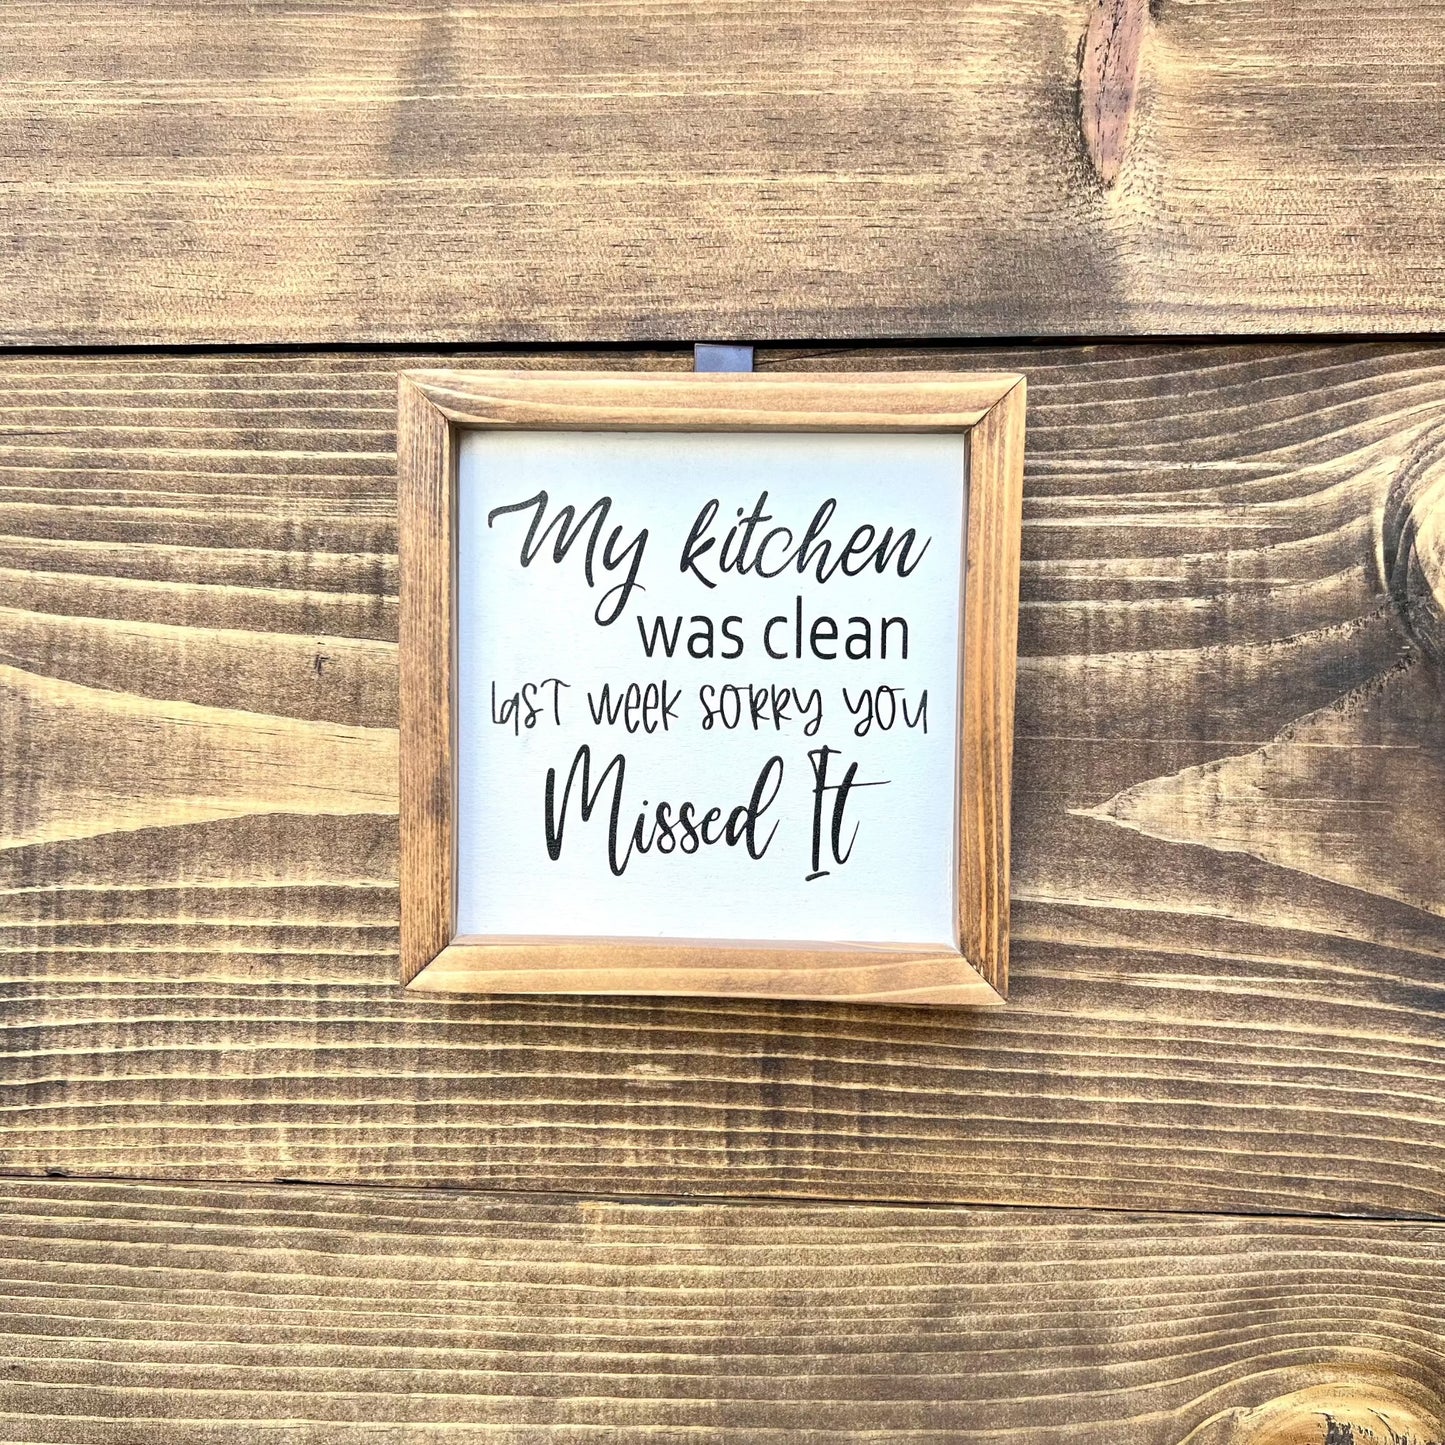 My kitchen
was clean
last week sorry you
Missed It